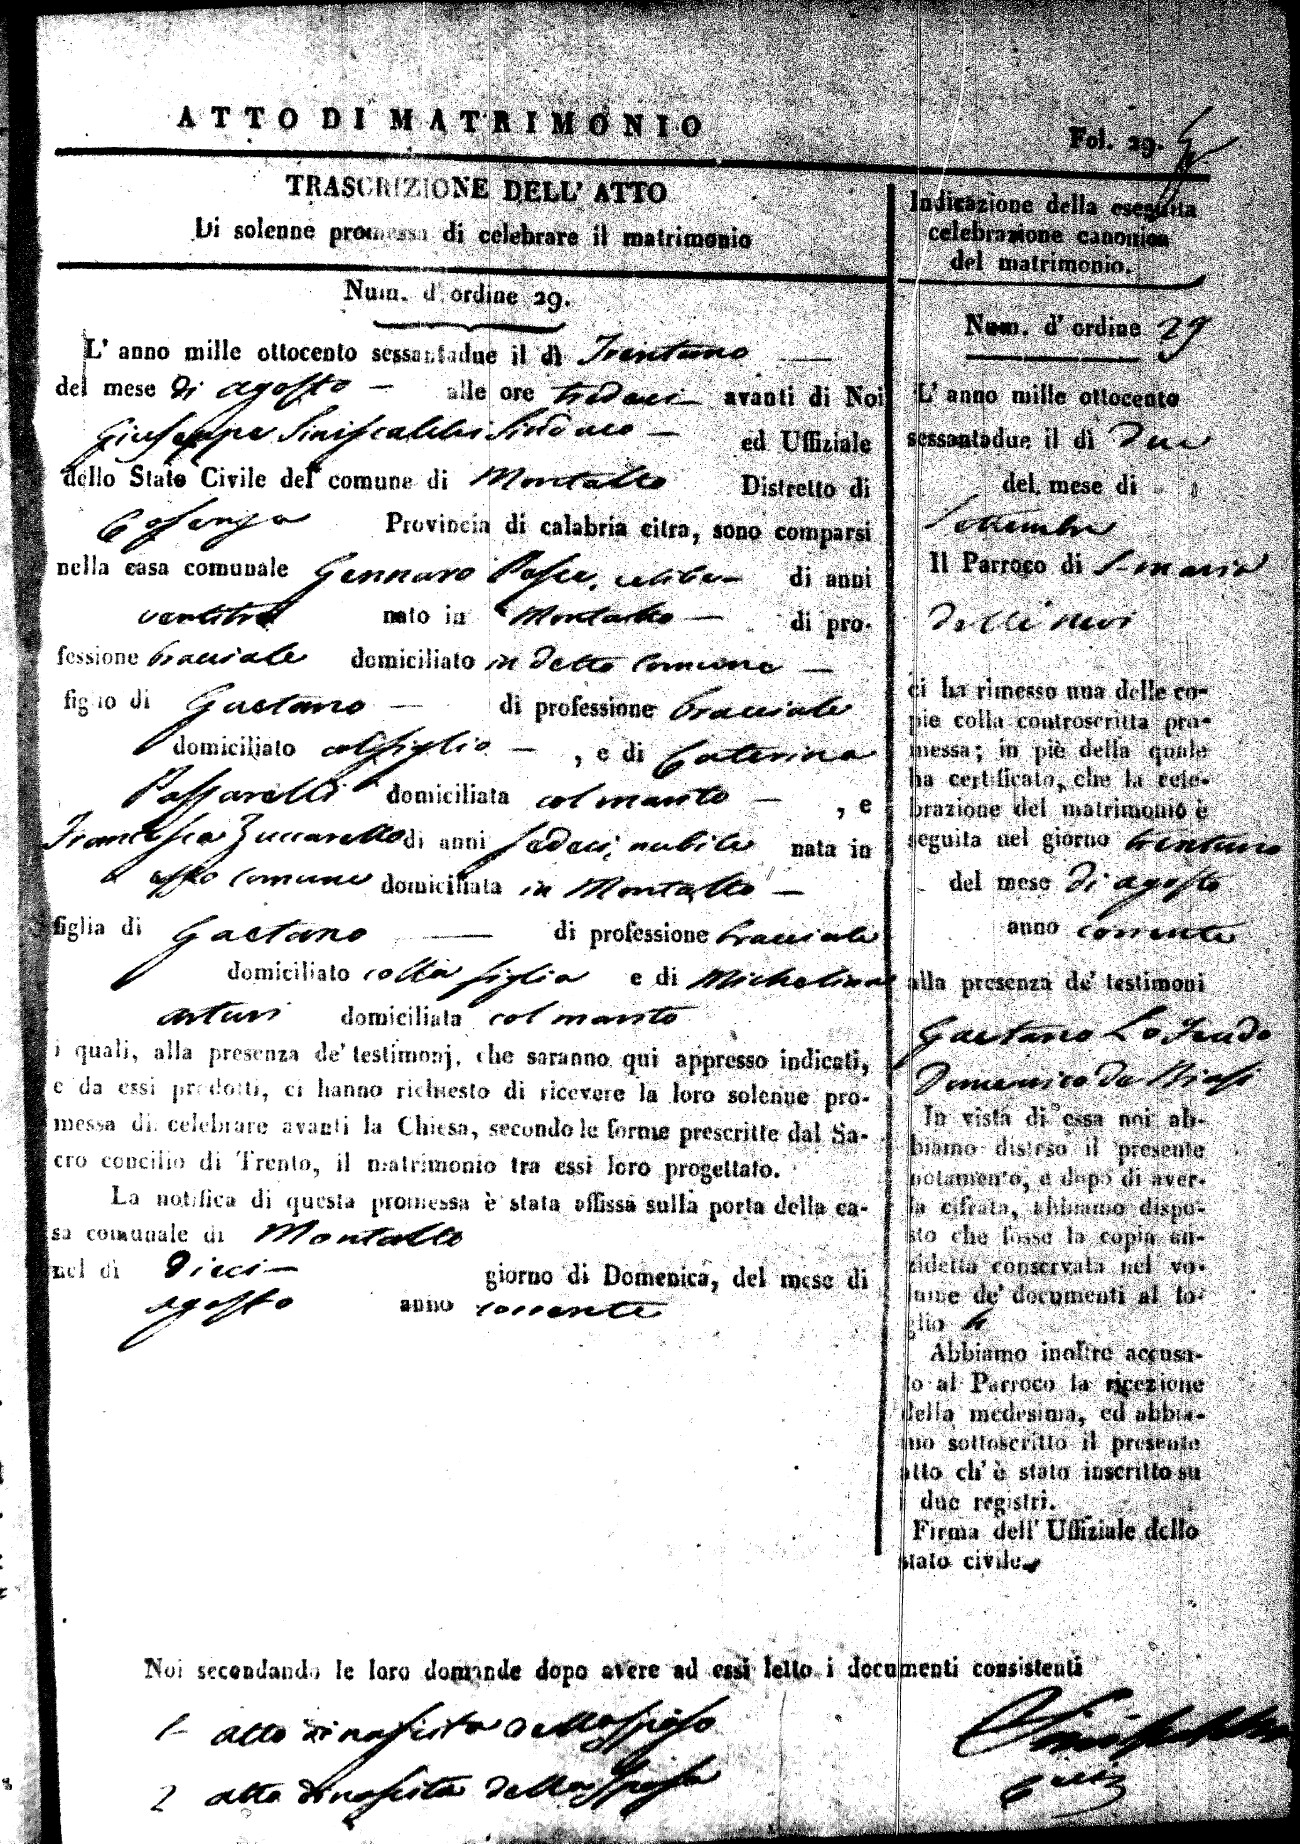 ATTO DI MATRIMONIO
Fol. 29.
TRASCRIZIONE DELL' ATTO
Di solenne promessa di celebrare il matrimonio
Num. d' ordine 29.
L' anno mille ottocento sessantadue il dì Trentuno
del mese di agosto — alle ore tredeci avanti di Noi
Giuseppe Siniscalchi Sindaco — ed Uffiziale
dello Stato Civile del comune di Montalto Distretto di
Cosenza Provincia di calabria citra, sono comparsi
nella casa comunale Gennaro Pasce, celibe — di anni
ventitre nato in Montalto — di pro-
fessione bracciale domiciliato in detto Comune —
figlio di Gaetano — di professione bracciale
domiciliato col figlio — , e di Caterina
Passarelli domiciliata col marito — , e
Francesca Zuccarello di anni sedeci, nubile nata in
esso Comune domiciliata in Montalto —
figlia di Gaetano — di professione bracciale
domiciliato colla figlia e di Michelina
Arturi domiciliata col marito
i quali, alla presenza de' testimonj, che saranno qui appresso indicati,
e da essi prodotti, ci hanno richiesto di ricevere la loro solenne pro-
messa di celebrare avanti la Chiesa, secondo le forme prescritte dal Sa-
cro concilio di Trento, il matrimonio tra essi loro progettato.
La notifica di questa promessa è stata affissa sulla porta della ca-
sa comunale di Montalto
nel dì Dieci — giorno di Domenica, del mese di
agosto anno corrente
Indicazione della eseguita
celebrazione canonica
del matrimonio.
Num. d' ordine 29
L' anno mille ottocento
sessantadue il dì due
del mese di
Settembre
Il Parroco di S. Maria
delli Nevi
ci ha rimesso una delle co-
pie colla controscritta pro-
messa; in piè della quale
ha certificato, che la cele-
brazione del matrimonio è
seguita nel giorno trentuno
del mese di agosto
anno corrente
alla presenza de' testimoni
Gaetano Lo Feudo
Domenico de Biasi
In vista di essa noi ab-
biamo disteso il presente
notamento, e dopo di aver-
la cifrata, abbiamo dispo-
sto che fosse la copia an-
zidetta conservata nel vo-
lume de' documenti al fo-
glio 4
Abbiamo inoltre accusa-
to al Parroco la ricezione
della medesima, ed abbia-
mo sottoscritto il presente
atto ch' è stato inscritto su
i due registri.
Firma dell' Uffiziale dello
stato civile.
Noi secondando le loro domande dopo avere ad essi letto i documenti consistenti
1 - atto di nascita dello sposo
2 atto di nascita della sposa
Siniscalchi